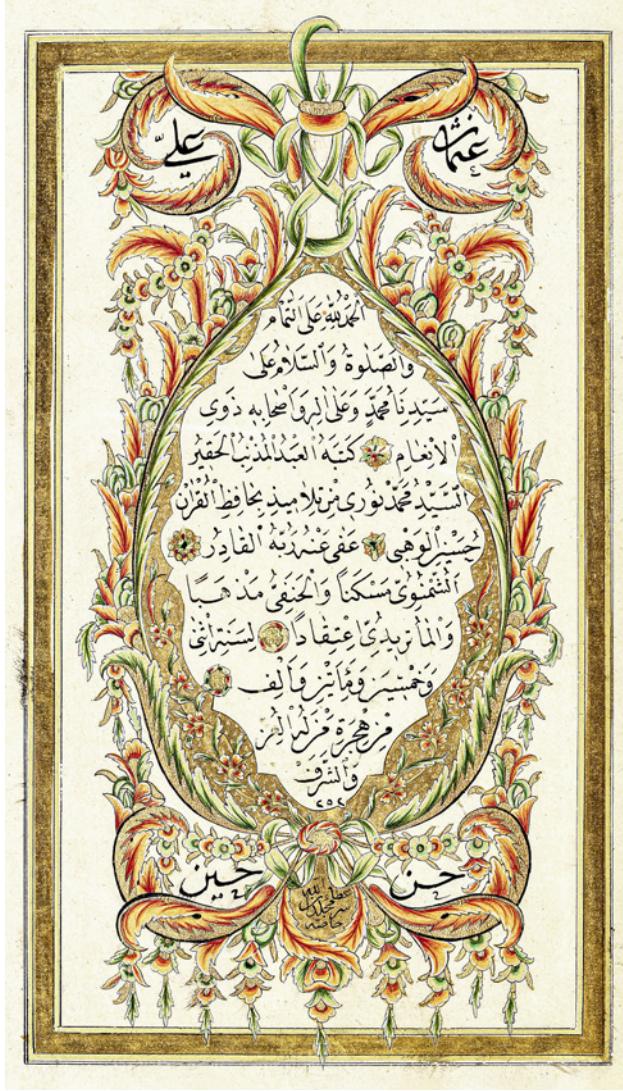 عثمان
علي
الحمد لله على التمام
والصلوة والسلام على
سيدنا محمد وعلى اله واصحابه ذوى
الانعام كتبه العبد المذنب الحقير
السيد محمد نورى من تلاميذ حافظ القران
حسن الوهبى عفى عنه ربه القادر
الشمنوى مسكناً والحنفى مذهباً
والماتريدى اعتقاداً لسنة اثنى
وخمسين ومأتين والف
من هجرة من له العز
والشرف
٢٥٢
حسن
حسين